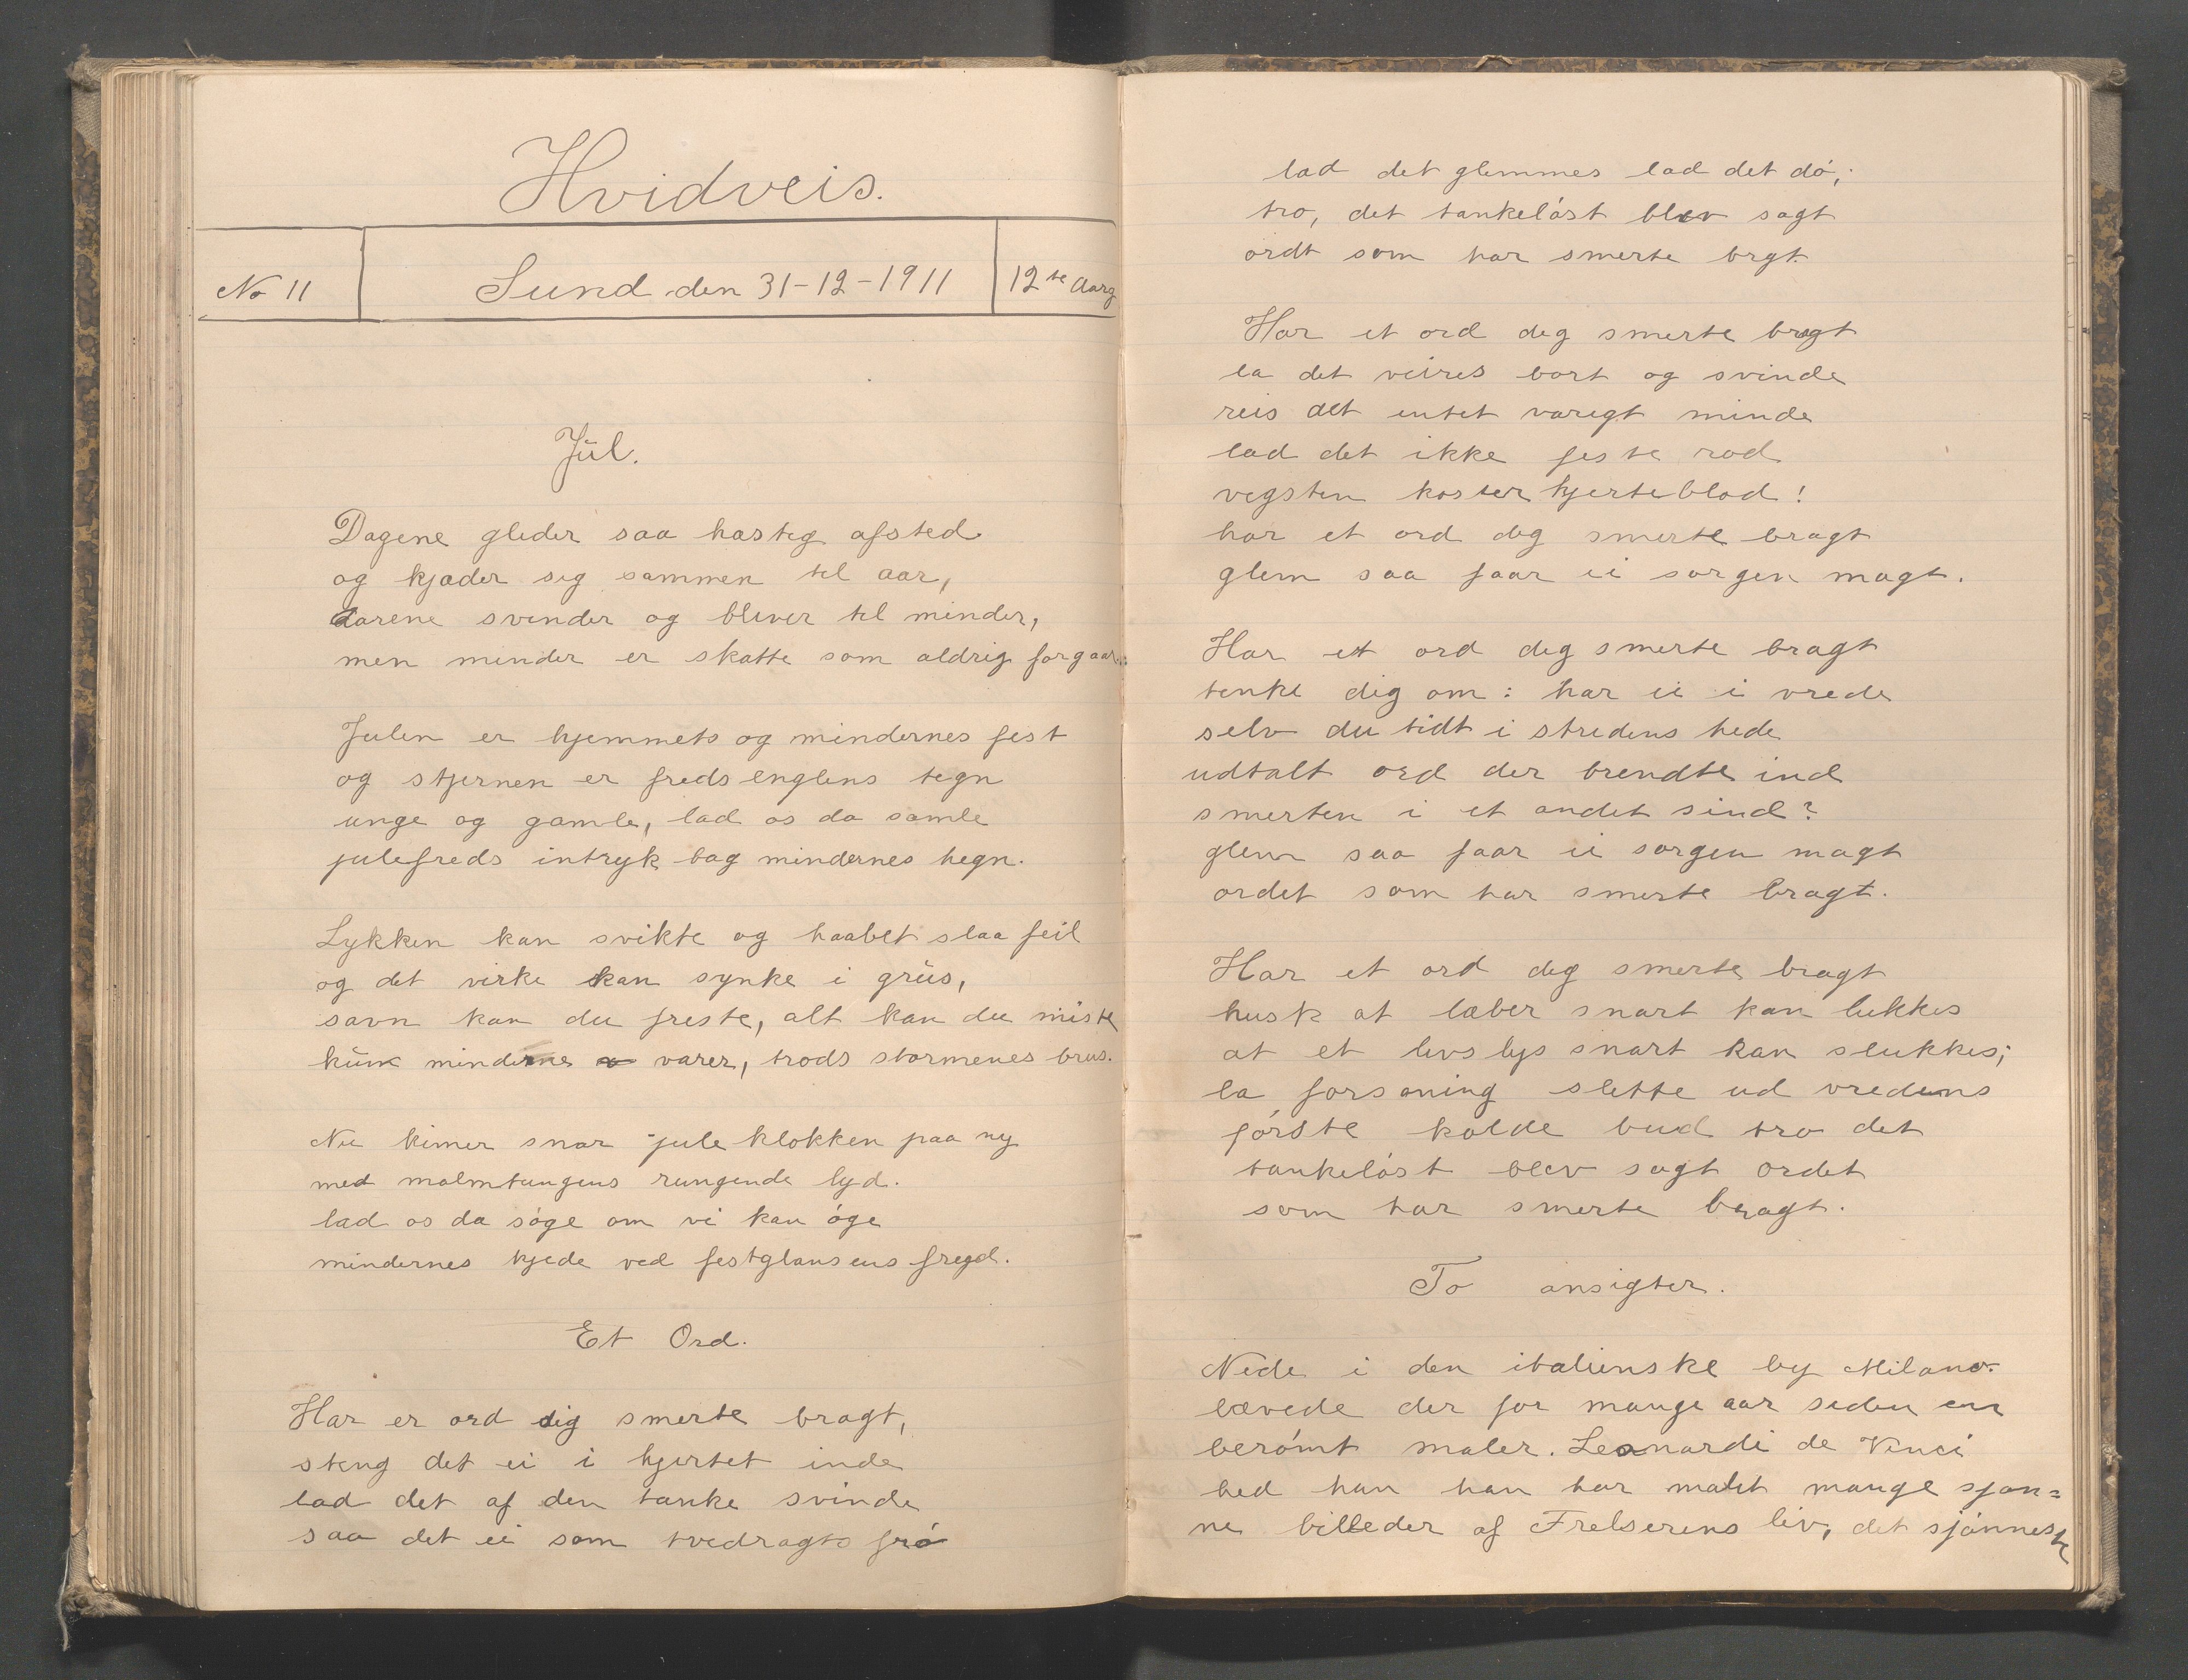 Hvidveis.
No 11
Sund den 31-12-1911
12te Aarg
Jul.
Dagene glider saa hastig afsted
og kjæder sig sammen til aar,
Aarene svinder og bliver til minder,
men minder er skatte som aldrig forgaar.
Julen er hjemmets og mindernes fest
og stjernen er fredsenglens tegn
unge og gamle, lad os da samle
julefreds intryk bag mindernes hegn.
Lykken kan svikte og haabet slaa feil
og det virke kan synke i grus,
savn kan du friste, alt kan du miste
kun minderne varer, trods stormenes brus.
Nu kimer snar juleklokken paa ny
med malmtungens rungende lyd.
lad os da søge om vi kan øge
mindernes kjede ved festglansens fryd.
Et Ord.
Har er ord dig smerte bragt,
steng det ei i hjertet inde
lad det af den tanke svinde
saa det ei som tvedragts frø
lad det glemmes lad det dø;
tro, det tankeløst blev sagt
ordt som har smerte brgt.
Har et ord dig smerte bragt
la det veires bort og svinde
reis det intet varigt minde
lad det ikke feste rod
vegsten koster hjerteblod!
har et ord dig smerte bragt
glem saa faar ei sorgen magt.
Har et ord dig smerte bragt
tenke dig om: har ei i vrede
selv du tidt i stridens hede
udtalt ord der brendte ind
smerten i et andet sind?
glem saa faar ei sorgen magt
ordet som har smerte bragt.
Har et ord dig smerte bragt
husk at læber snart kan lukkes
at et livslys snart kan slukkes;
la forsoning slette ud vredens
første kolde bud tro det
tankeløst blev sagt ordet
som har smerte bragt.
To ansigter.
Nede i den italienske by Milano.
levede der for mange aar siden en
berømt maler. Leonardi de Vinci
hed han han har malet mange sjøn=
ne billeder af Frelserens liv, det sjønneste